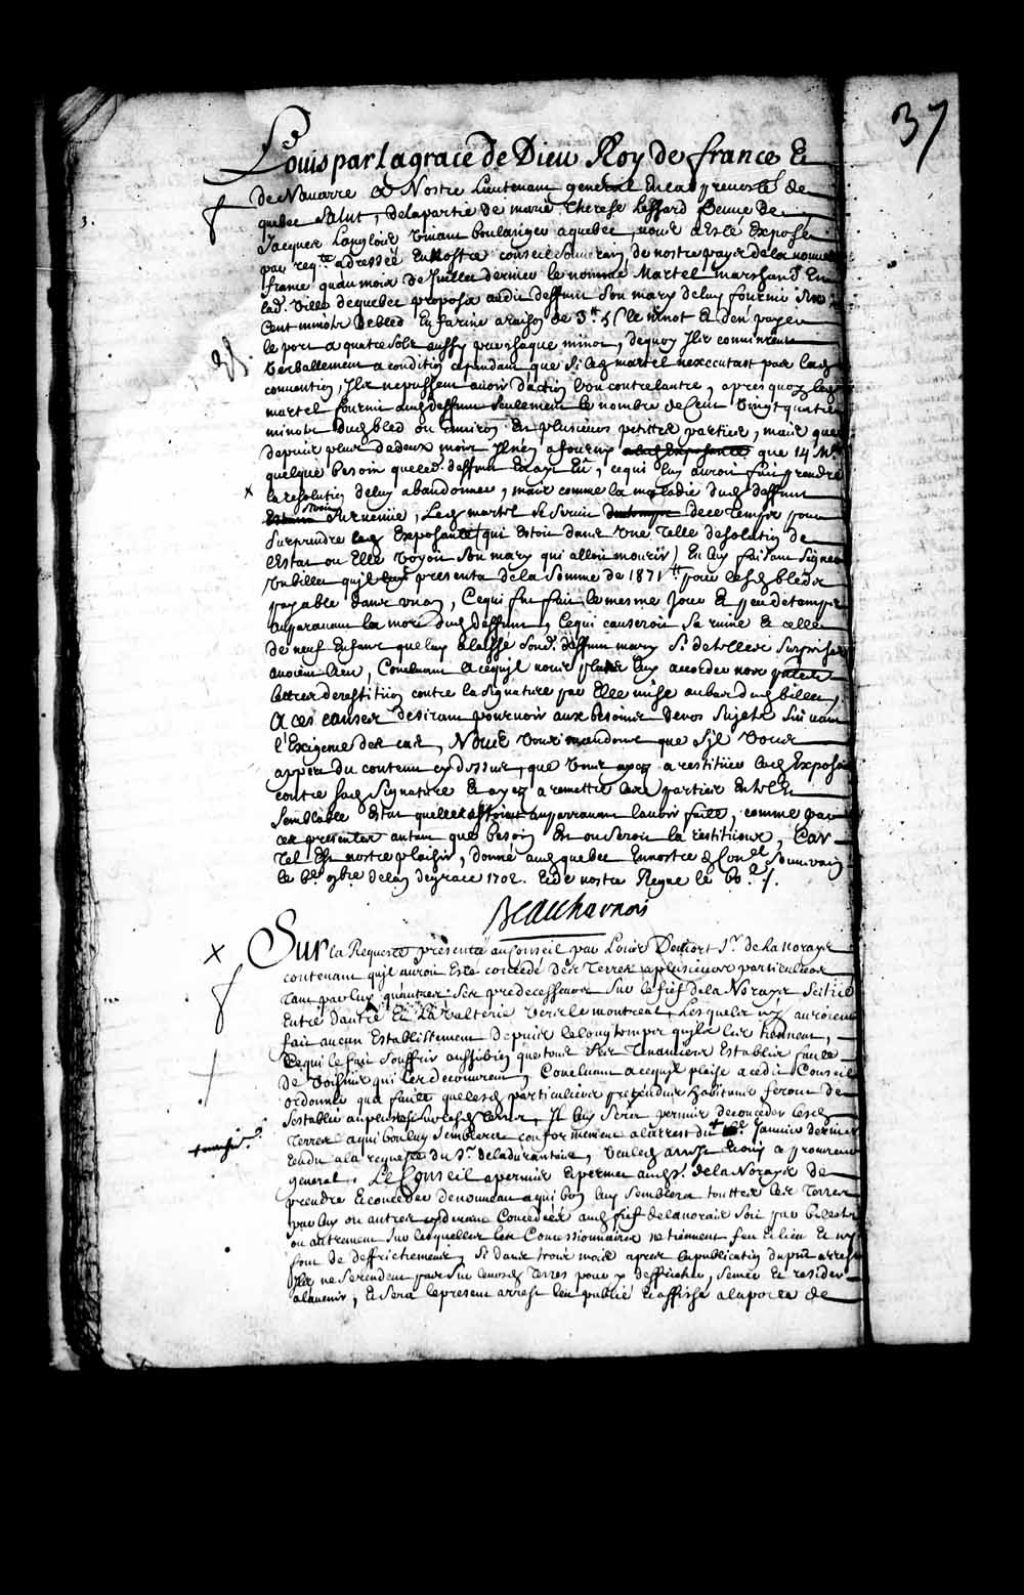 37
Louis par la grace de Dieu Roy de france Et
de Navarre A Nostre Lieutenant general En la prevosté de
quebec Salut, de la partie de marie Therese Lessard Veuve de
Jacques Langlois vivant boulanger a quebec, nous a Esté Exposé
par reqte adressée En nostre conseil Souverain de nostre pays de la nouvelle
france quau mois de Juillet dernier le nommé Martel marchand En
lad. Ville de quebec proposa audit deffunt Son mary de luy fournir
Cent minots de bled En farine a raison de 3tt le minot Et d'en payer
le port a quatre sols aussy par chaque minot, dequoy Ils convinrent
verballement a condition cependant que Si led martel nexecutast pas lad
convention, Ils ne pussent avoir d'action l'un contre lautre, apres quoy led
martel fournit aud deffunt Seulement le nombre de Cent vingt quatre
minots dud bled ou Environ En plusieurs petites parties, mais que
depuis plus de deux mois Il n'en a fourny que 14 Mts
quelque besoin que led. deffunt En ayt Eu, ce qui luy auroit fait prendre
la resolution de luy abandonner, mais comme la maladie dud deffunt
Survenüe, Led martel Se Servit de ce Temps pour
Surprendre lad Exposante (qui Estoit dans Une Telle desolation de
l'Estat ou Elle voyoit Son mary qui alloit mourir) En luy faisant Signer
Un billet qu'il presenta de la Somme de 1871tt pour lesd bleds
payable dans un an, Ce qui fut fait le mesme Jour Et peu de temps
auparavant la mort dud deffunt, Ce qui causeroit Sa ruine Et celle
de neuf Enfans que luy a laissé Sond. deffunt mary Si de telles Surprises
avoient lieu, Concluant a ce qu'il nous plaise luy accorder nos
lettres de restitution contre la Signature par Elle mise au bas dud billet,
A ces causes desirant pourvoir aux besoins de nos Sujets Suivant
l'Exigence des cas, Nous vous mandons que S'il vous
appert du contenu cy dessus, que vous ayez a restitüer lad Exposante
contre lad Signature Et ayez a remettre les parties En tel Et
Semblable Estat quelles Estoient auparavant lavoir faite, comme par
ces presentes autant que besoin Est ou Seroit la restituons, Car
Tel Est nostre plaisir, donné aud quebec En nostre d Conel Souverain
le 6e 9bre de lan de grace 1702. Et de nostre Regne le 60.e
Beauharnois
Sur la Requeste presentée au Conseil par Louis Sr. de la noraye
contenant qu'il auroit Esté concedé des Terres a plusieurs particuliers
tant par luy qu'autres Ses predecesseurs Sur le fief de la Noraye Seitüé
Entre dautré Et La valterie vers le montreal, Lesquels n'y auroient
fait aucun Establissement depuis le long temps qu'ils les tiennent,
Ce qui le fait Souffrir aussi bien que tous Ses Tenanciers Establis faute
de voisins qui les decouvrent, Concluant a ce qu'il plaise a cedit Conseil
ordonner qua faute que lesd particuliers pretendus habitans feront de
Sestablir au plustost Sur lesd terres, Il luy Sera permis de conceder lesd
Terres a qui bon luy Semblera conformement a larrest du Janvier dernier
rendu a la requeste du Sr. de la durantaie, veu led arrest Et ouy le procureur
general. Le Conseil a permis Et permet aud Sr. de la Noraye de
prendre Et conceder de nouveau a qui bon luy Semblera touttes les Terres
par luy ou autres cydevant Concedées aud fief de la noraie Soit par billets
ou autrement Sur lesquelles les Concessionnaires ne tiennent feu Et lieu Et n'y
font de deffrichement, Si dans trois mois apres la publication du pnt arrest
Ils ne Se rendent pas Sur lesd Terres pour y deffricher, Semer Et resider
a lavenir, Et Sera le present arrest leu publié Et affiché a la porte de